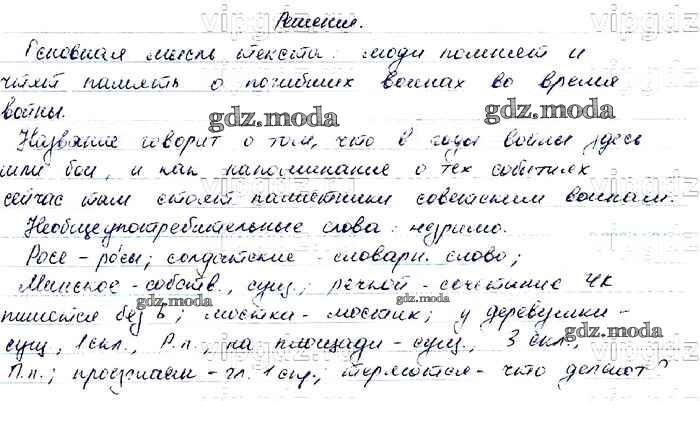 Решения.
Основная мысль текста: люди помнят и
чтят память о погибших воинах во время
войны.
Название говорит о том, что в годы войны здесь
шли бои, и как напоминание о тех событиях
сейчас там стоят памятники советским воинам.
Необщеупотребительные слова: незримо.
Росе - ро́сы; солдатские - словарн. слово;
Минское - собств., сущ.; речной - сочетание чн
пишется без ь; мостки - мостик; у деревушки -
сущ., 1 скл., Р.п., на площади - сущ., 3 скл.,
П.п.; проезжаем - гл. 1 спр.; - что делают?
gdz.moda
gdz.moda
gdz.moda
gdz.moda
gdz.moda
vipgdz